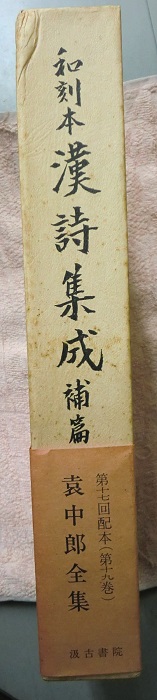 和刻本漢詩集成補篇
第十七回配本(第十九巻)
袁中郎全集
汲古書院